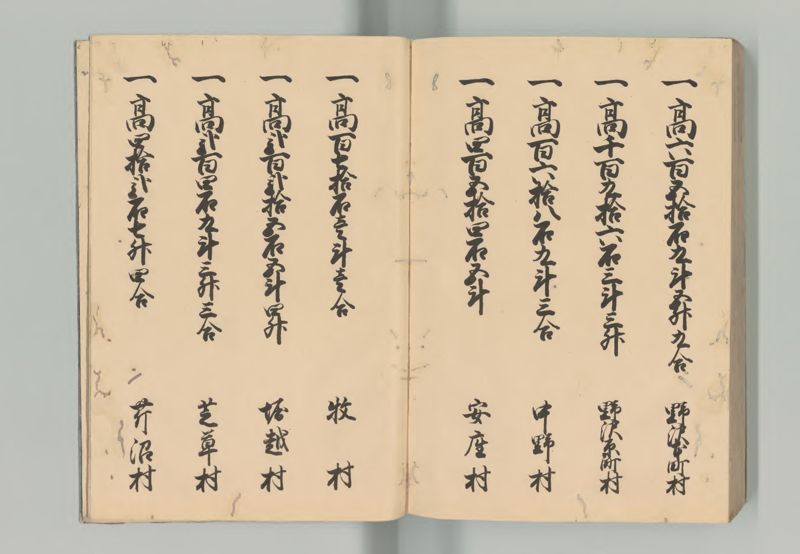 一高六百五拾石九斗五升九合 野沢本町村
一高千百九拾六石三斗三升 野沢原町村
一高百六拾八石九斗三合 中野村
一高四百五拾四石五斗 安座村
一高百七拾石壱斗壱合 牧村
一高弐百弐拾五石五斗四升 堀越村
一高弐百四石九斗三升三合 芝草村
一高四拾弐石七升四合 芹沼村